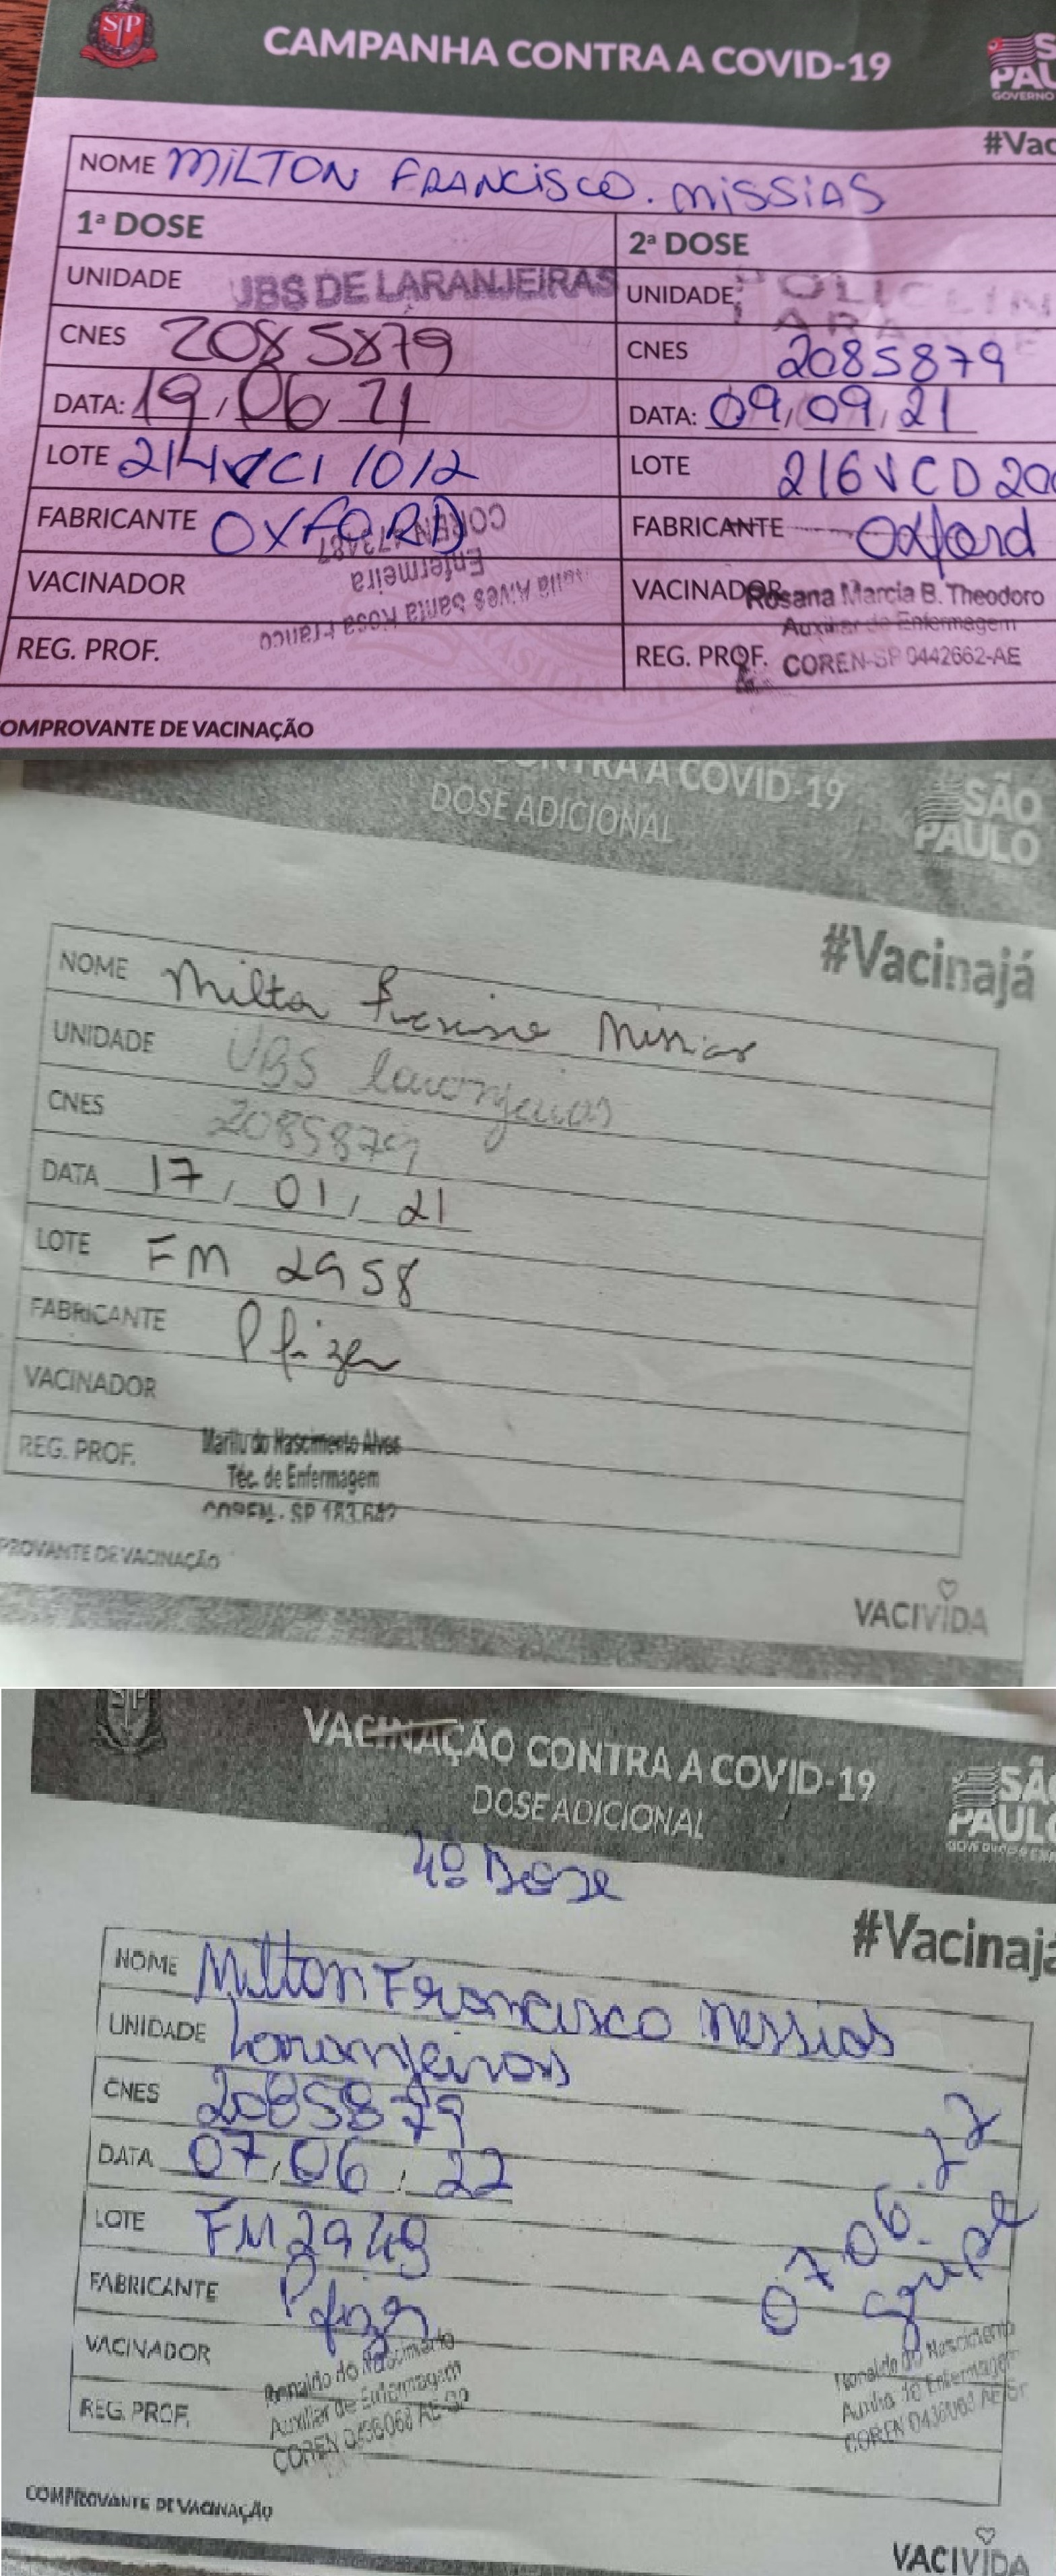 SP
CAMPANHA CONTRA A COVID-19
S
PAU
GOVERNO
#Vac
NOME MILTON FRANCISCO. MISSIAS
1ª DOSE
2ª DOSE
UNIDADE UBS DE LARANJEIRAS
UNIDADE:
CNES 2085879
CNES 2085879
DATA: 19/06/21
DATA: 09/09/21
LOTE 214VCI1012
LOTE 216VCD20
FABRICANTE OXFORD
FABRICANTE Oxford
COREN
Enfermeira
Alves Santa Rosa Franco
VACINADOR
VACINADOR Rosana Marcia B. Theodoro
Auxiliar de Enfermagem
REG. PROF.
REG. PROF. COREN-SP 0442662-AE
COMPROVANTE DE VACINAÇÃO
CONTRA A COVID-19
DOSE ADICIONAL
SÃO
PAULO
#Vacinajá
NOME Milton Francisco Missias
UNIDADE UBS Laranjeiras
CNES 2085879
DATA 17/01/21
LOTE FM 2958
FABRICANTE Pfizer
VACINADOR
REG. PROF.
Marilu do Nascimento Alves
Téc. de Enfermagem
COREN - SP
PROVANTE DE VACINAÇÃO
VACIVIDA
VACINAÇÃO CONTRA A COVID-19
DOSE ADICIONAL
SÃO
PAULO
4º Dose
#Vacinajá
NOME Milton Francisco Messias
UNIDADE Laranjeiras
CNES 2085879
DATA 07/06/22
07.06.22
LOTE FM2949
FABRICANTE Pfizer
VACINADOR
REG. PROF.
Ronaldo do Nascimento
Auxiliar de Enfermagem
COREN 0436068 AE-SP
Ronaldo do Nascimento
Auxiliar de Enfermagem
COREN 0436068 AE-SP
COMPROVANTE DE VACINAÇÃO
VACIVIDA